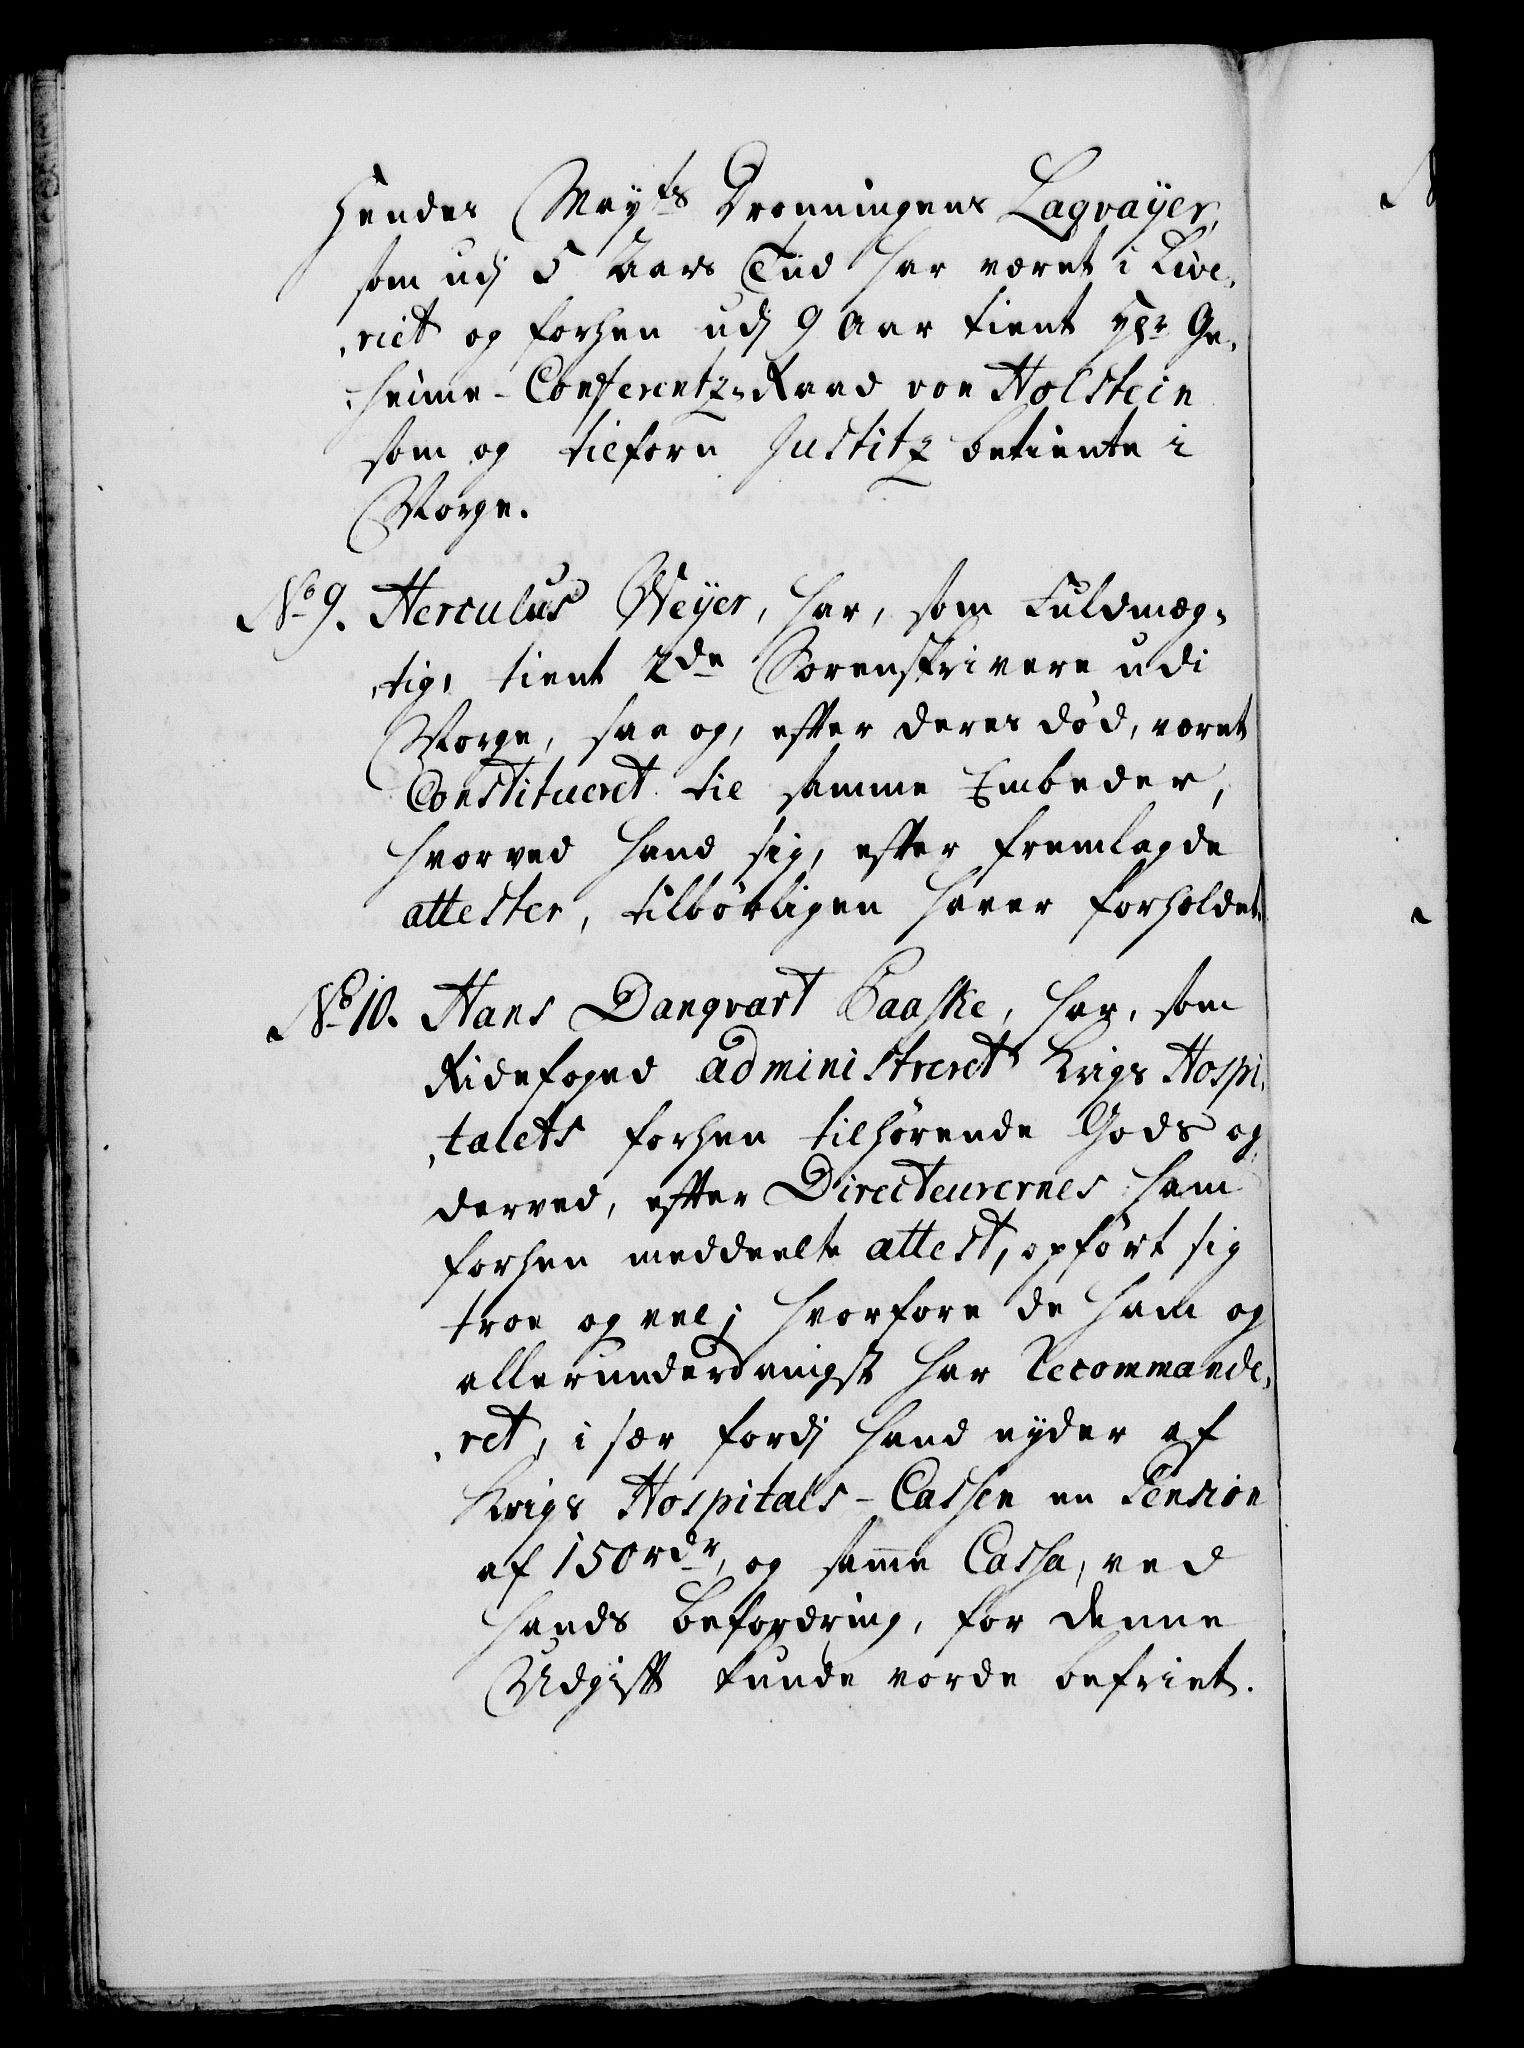 Hendes Mayts Dronningens Laqvayer,
som udj 5 Aars Tiid har været i Live,
,riet og forhen udj 9 Aar tient Hr Ge,
,heime-Conferentz-Raad von Holstein
som og tilforn Justitz betiente i
Norge.
No 9. Herculus Weyer, har, som Fuldmæg,
,tig, tient 2de Sorenskrivere udi
Norge, saa og, efter deres død, været
Constitueret til samme Embeder,
hvorved hand sig, efter fremlagde
attester, tilbørligen haver forholdet.
No 10. Hans Danqvart Paaske, har, som
Ridefoged administreret Krigs Hospi,
,talets forhen tilhørende Gods og
derved, efter Directeurernes ham
forhen meddeelte attest, opført sig
troe og vel; hvorfore de ham og
allerunderdanigst har Recommande,
,ret, i sær fordj hand nyder af
Krigs Hospitals-Cassen en Pension
af 150 rdr, og samme Cassa, ved
hands befordring, for denne
Udgift kunde vorde befriet.